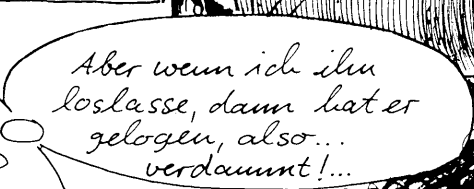 Aber wenn ich ihn
loslasse, dann hat er
gelogen, also...
verdammt!...